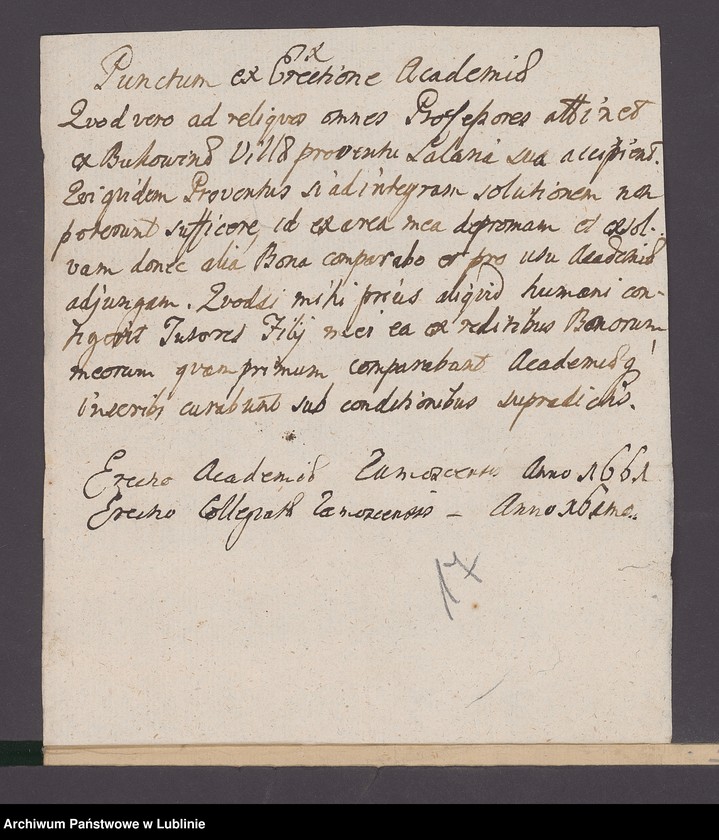 Punctum ex Erectione Academiæ
Quod vero ad reliquos omnes Professores attinet
ex Bukowinæ Villæ proventu Salaria sua accipient.
Qui quidem Proventus si ad integram solutionem non
poterunt sufficere, id ex area mea depromam et exsol-
vam donec alia Bona comparabo et pro usu Academiæ
adjungam. Quodsi mihi prius aliquid humani con-
tigerit Tutores Filij mei ea ex reditibus Bonorum
meorum quam primum comparabunt Academiæq'
inscribi curabunt sub conditionibus supradictis.
Erectio Academiæ Zamoscensis Anno 1661
Erectio Collegiatæ Zamoscensis – Anno
17
Archiwum Państwowe w Lublinie